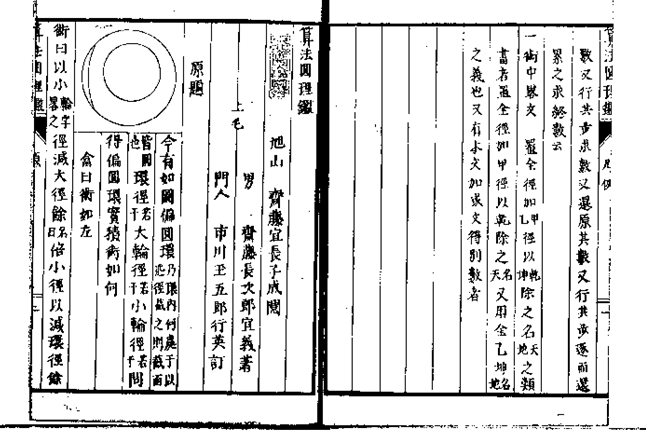 數又行共步求數又還原其數又行共步逐而還
累之求終數云
一術中畧文 置全徑如甲乙徑以乾坤除之名天地之類
書者置全徑如甲徑以乾除之名天又用全乙坤名地
之義也又有本文如或文得別數者
算法圓理鑑
旭山 齋藤宜長子成閲
上毛
男 齋藤長次郎宜義著
門人 市川玉五郎行英訂
原題
今有如圖偏圓環乃環內何處于以
徑截之則截面
皆圓也環徑若干大輪徑若干小輪徑若干問
得偏圓環實積術如何
答曰術如左
術曰以小輪字畧之徑減大徑餘名曰倍小徑以減環徑餘
算法圓理鑑